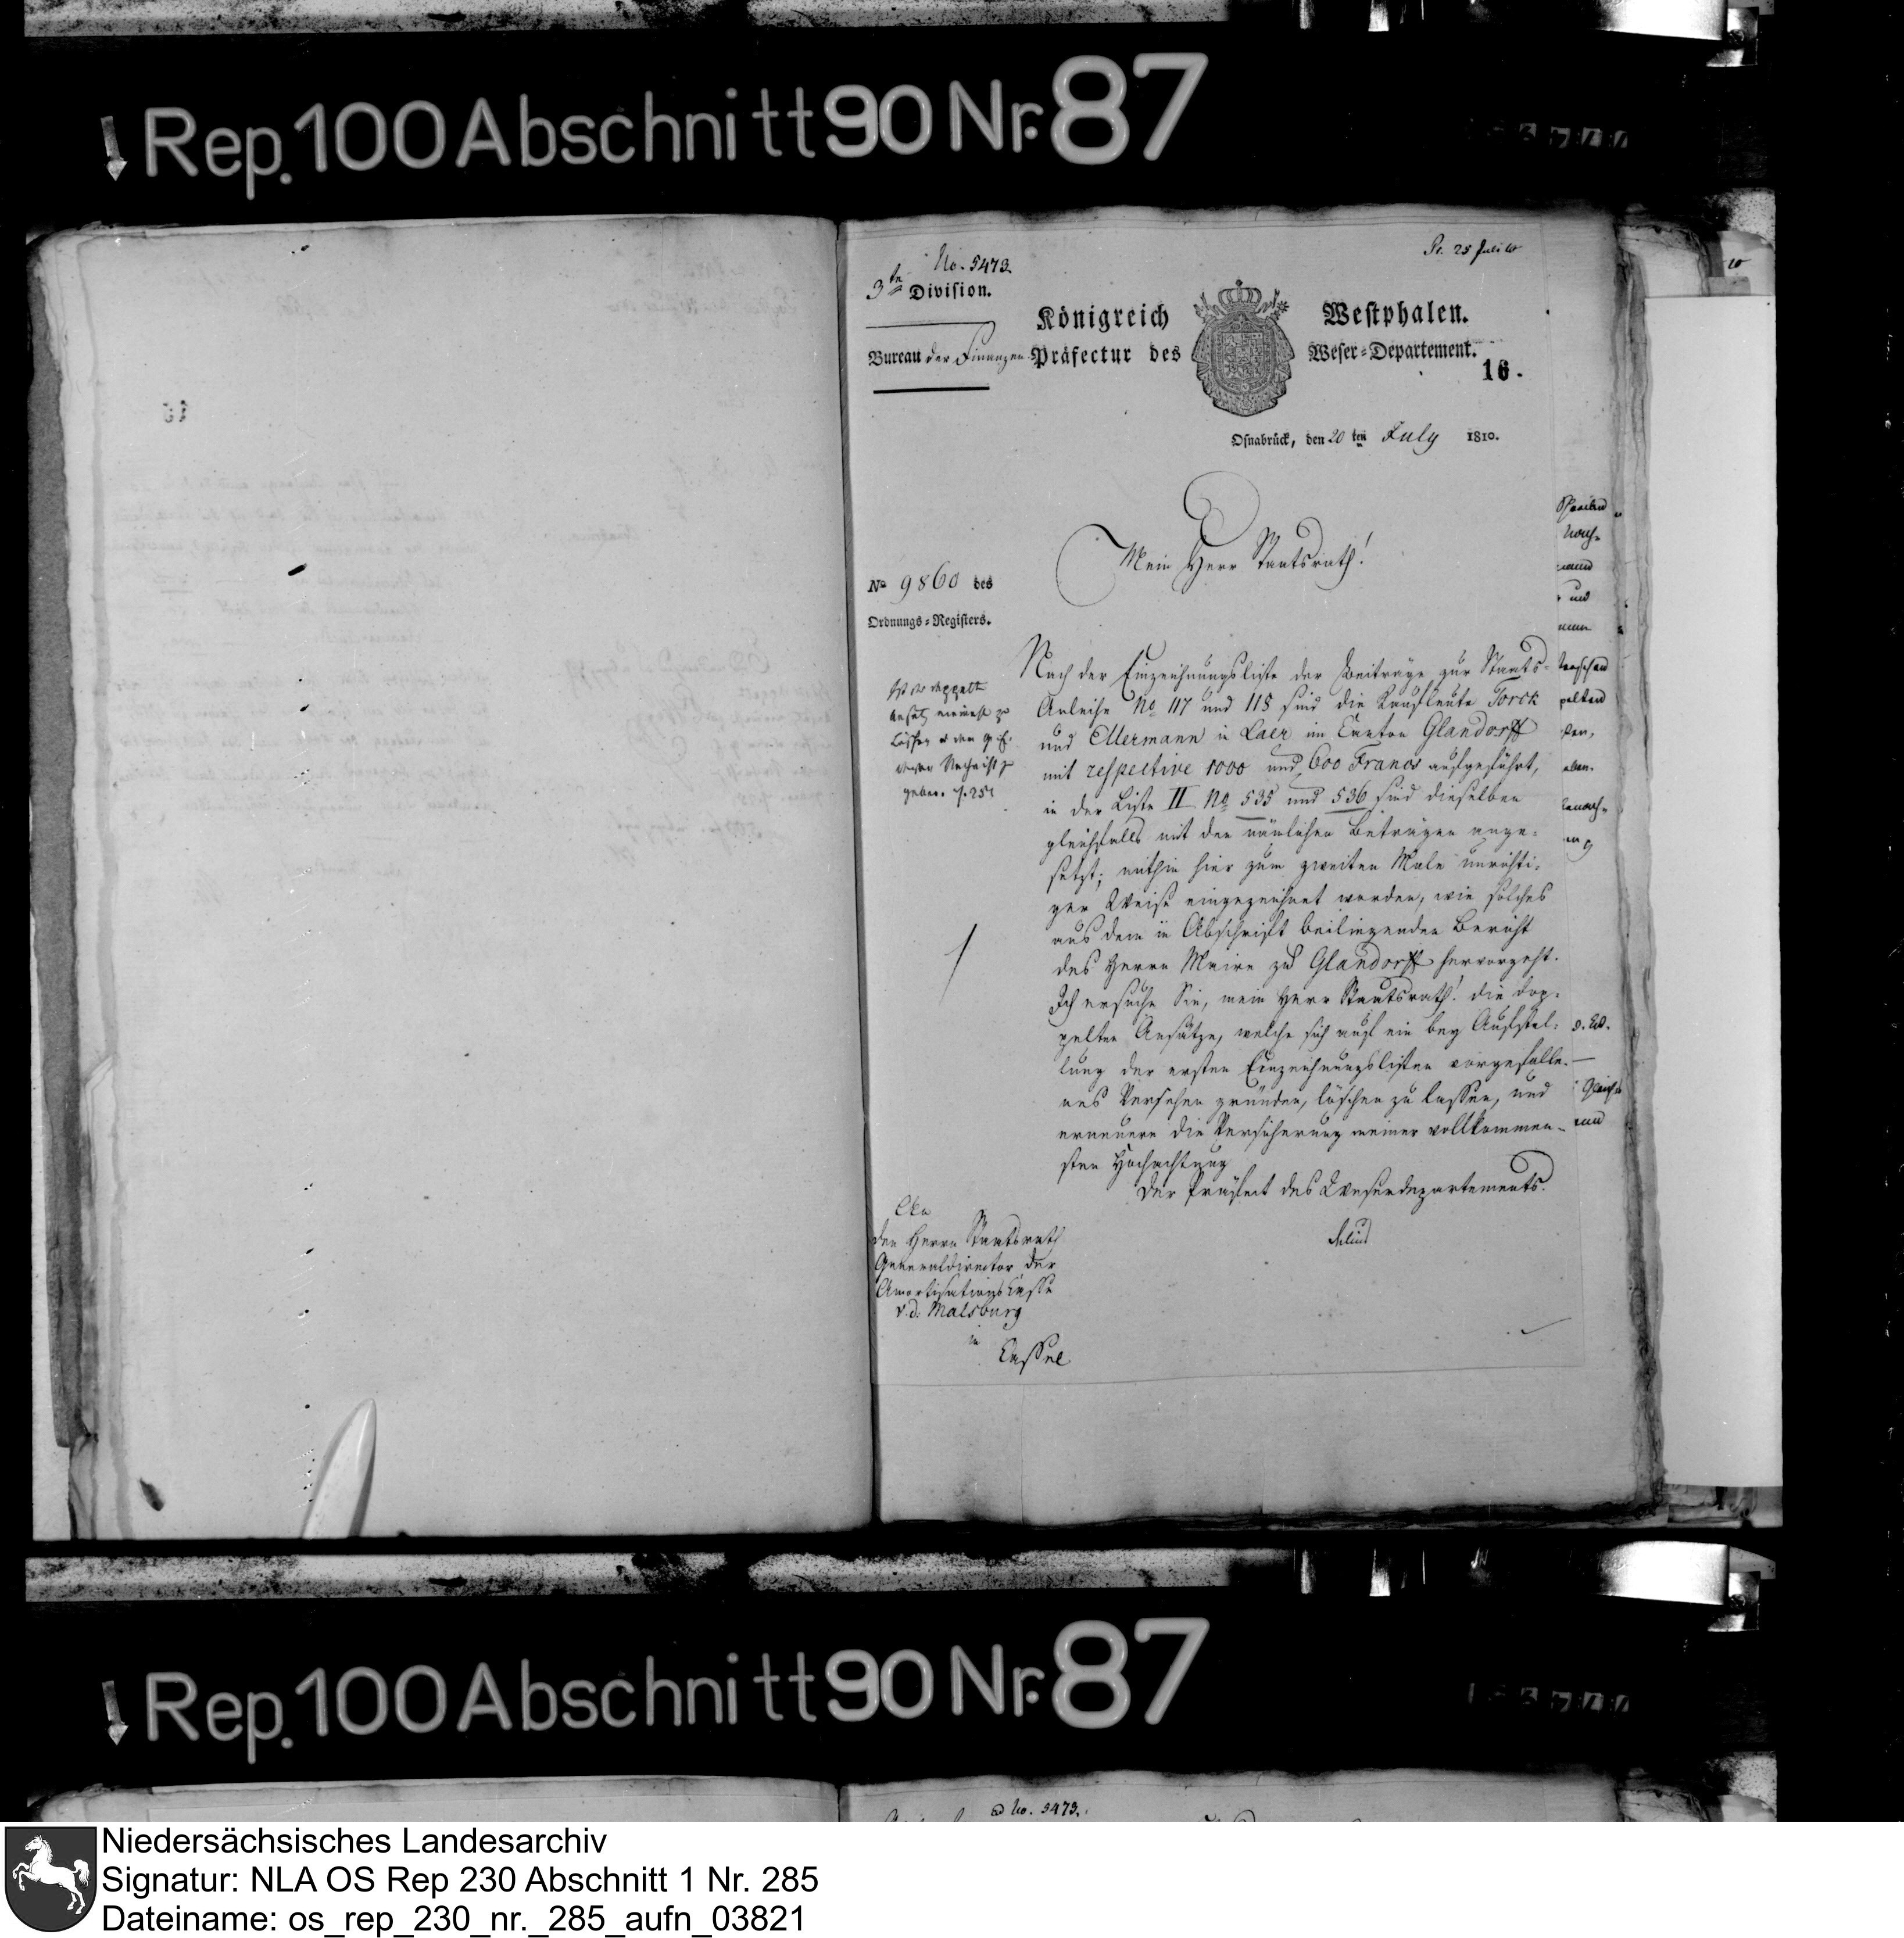 Rep. 100 Abschnitt 90 Nr. 87
No. 5473.
Pr. 25 Juli 10
3te Division.
Königreich Westphalen.
Bureau der Finanzen Präfectur des Weser-Departement.
16.
Osnabrück, den 20 ten July 1810.
Mein Herr Staatsrath!
No 9860 des
Ordnungs-Registers.
Nach der Einzeichnungsliste der Beiträge zur Staats-
Anleihe No 117 und 118 sind die Kaufleute Torck
und Ellermann in Laer im Canton Glandorff
mit respective 1000 und 600 Francs aufgeführt,
in der Liste II No 535 und 536 sind dieselben
gleichfalls mit den nämlichen Beträgen ange-
setzt; mithin hier zum zweiten Male unrichti-
ger Weise eingezeichnet worden, wie solches
aus dem in Abschrift beiliegenden Bericht
des Herrn Maire zu Glandorff hervorgeht.
Ich ersuche Sie, mein Herr Staatsrath! die dop-
pelten Ansätze, welche sich auf ein bey Aufstel-
lung der ersten Einzeichnungslisten vorgefalle-
nes Versehen gründen, löschen zu lassen, und
erneuere die Versicherung meiner vollkommen-
sten Hochachtung
Der Präfect des Weserdepartements.
Ist der doppelte
Ansatz
löschen
Nachricht z
geben.
An
den Herrn Staatsrath
Generaldirector der
Amortisations Casse
v. d. Malsburg
in
Cassel
Rep. 100 Abschnitt 90 Nr. 87
ad No. 5473.
Niedersächsisches Landesarchiv
Signatur: NLA OS Rep 230 Abschnitt 1 Nr. 285
Dateiname: os_rep_230_nr._285_aufn_03821